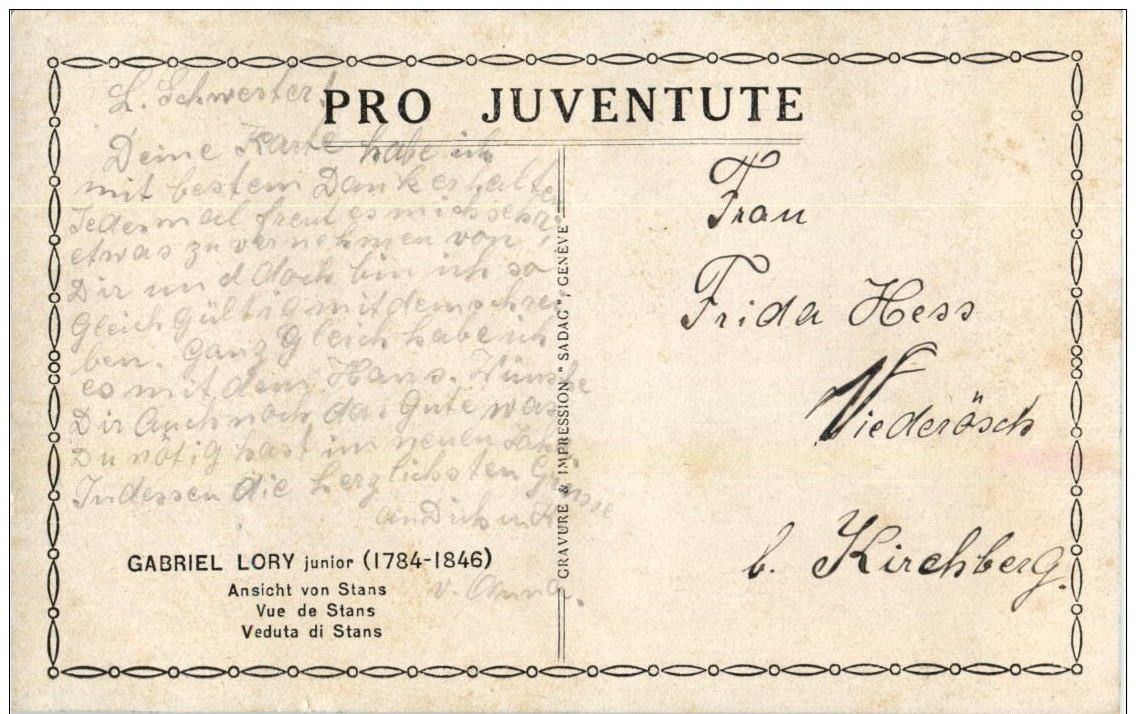 PRO JUVENTUTE
L. Schwester!
Deine Karte habe ich
mit bestem Dank erhalten
Jedesmal freut es mich sehr
etwas zu vernehmen von
Dir und doch bin ich so
Gleich Gültig mit dem schrei
ben. Ganz Gleich habe ich
es mit dem Hans. Wünsche
Dir Auch noch das Gute was
Du nötig hast im neuen Jahr
Indessen die herzlichsten Grüsse
an Dich u.
v. Anna.
GABRIEL LORY junior (1784-1846)
Ansicht von Stans
Vue de Stans
Veduta di Stans
GRAVURE & IMPRESSION "SADAG", GENÈVE
Frau
Frida Hess
Niederösch
b. Kirchberg.